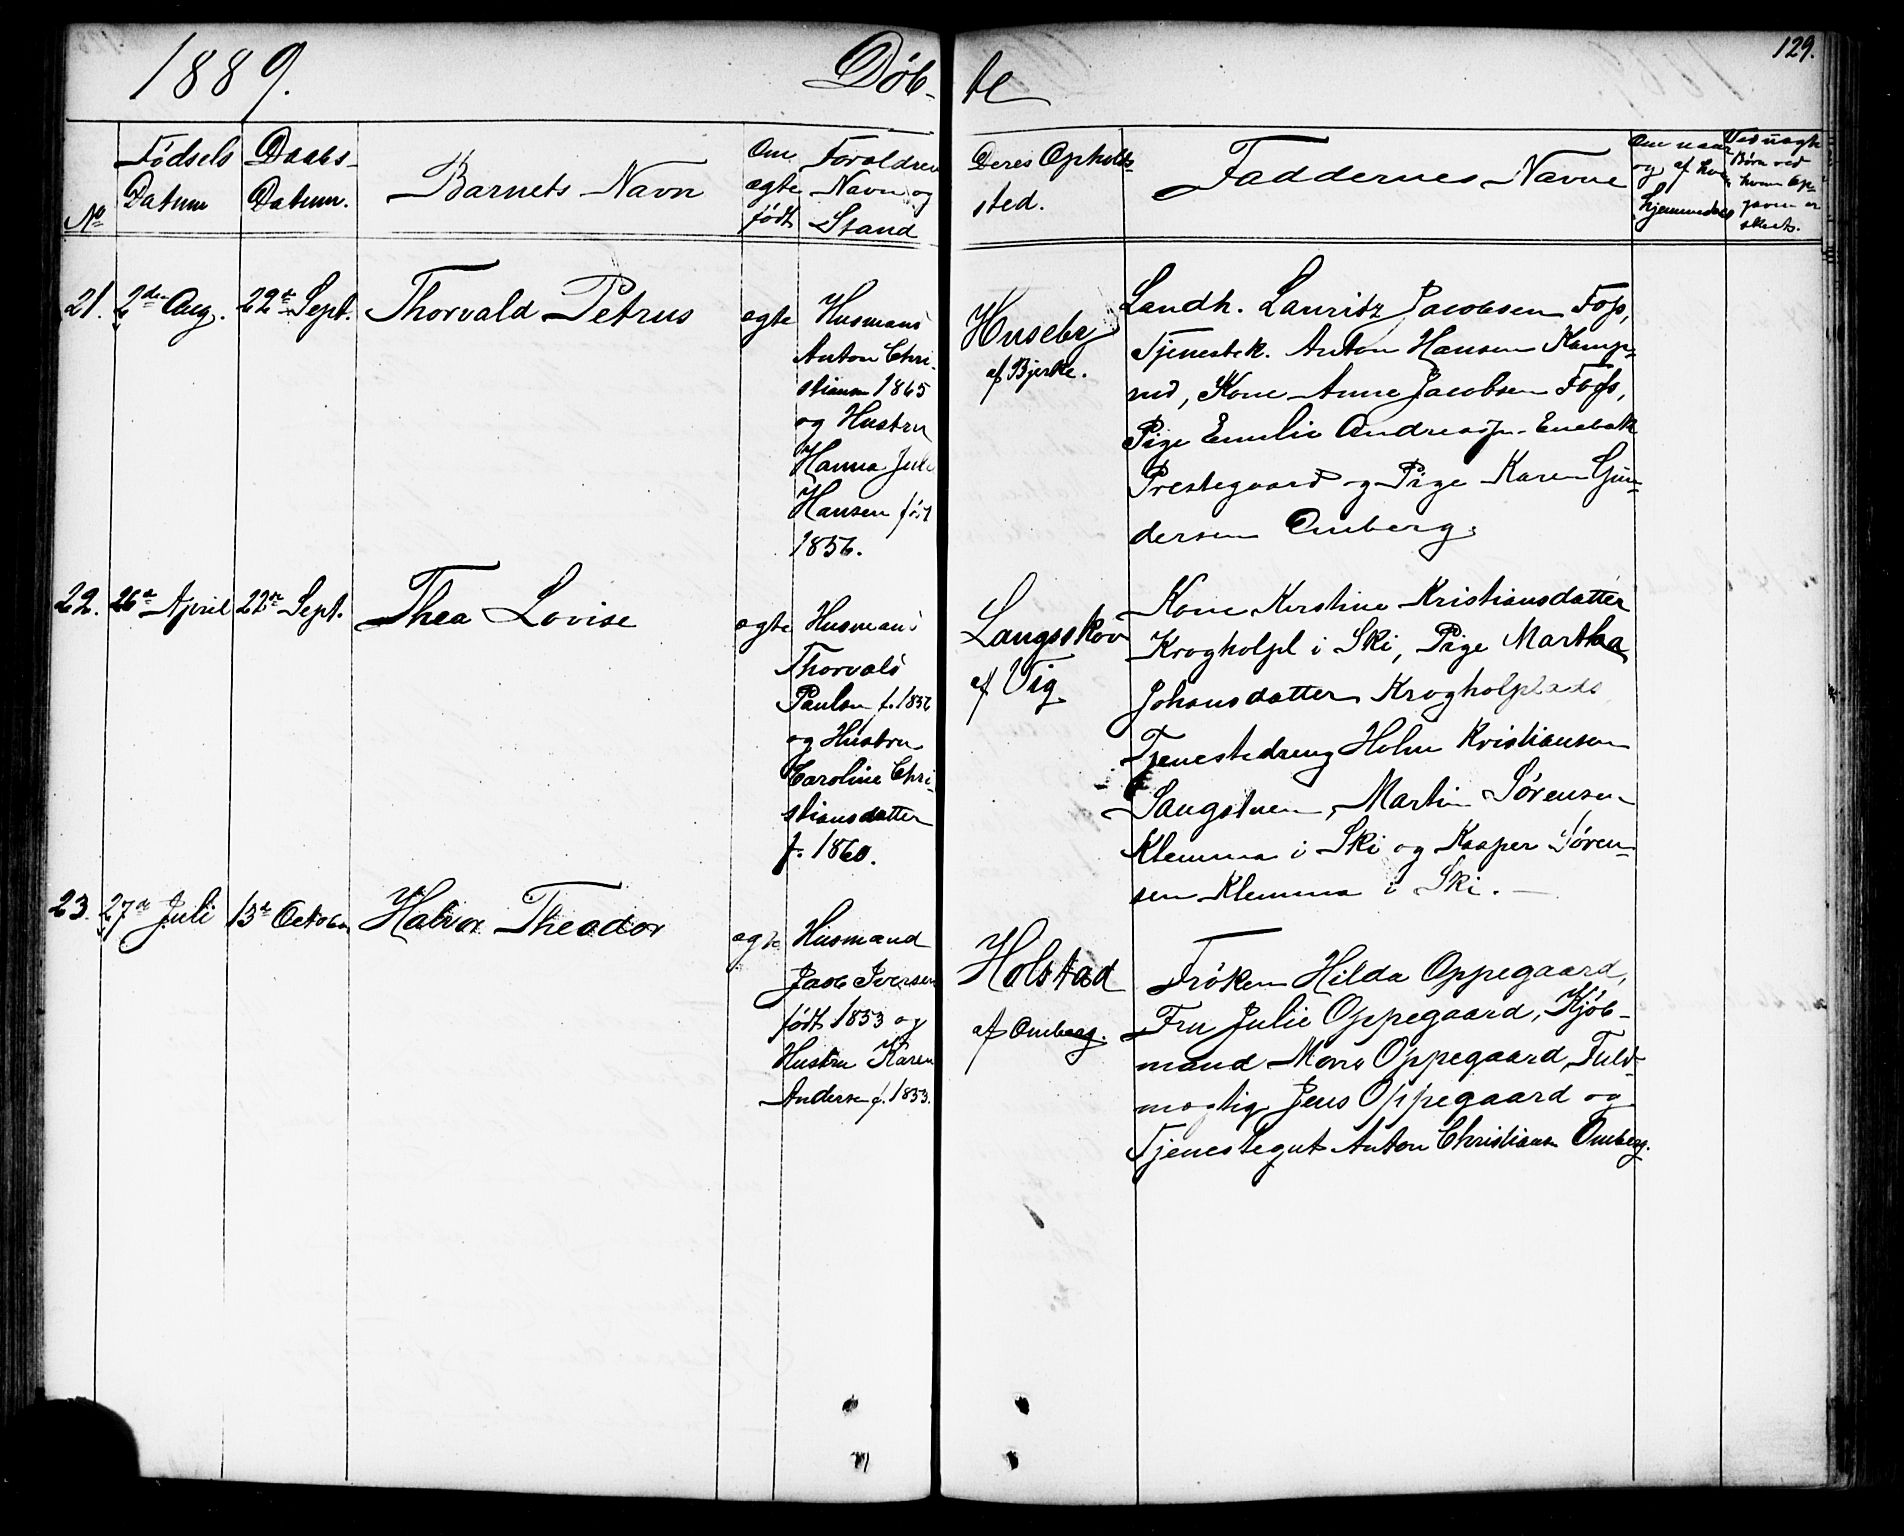 1889.
Døb-
te
129.
No
Fødsels
Datum
Daabs-
Datum.
Barnets Navn
Om
ægte
født
Forældres
Navn og
Stand
Deres Opholds-
sted.
Faddernes Navne
Om naar
og af hvem
hjemmedøbt
Ved uægte
Børn ved
hvem Op-
gaven er
skeet.
21.
2den Aug.
22de Sept.
Thorvald Petrus
ægte
Husmand
Anton Chri-
stiansen 1865
og Hustru
Hanna Juli
Hansen født
1856.
Huseby
af Bjerke.
Landh. Lauritz Jacobsen Foss,
Tjenestek. Anton Hansen Kamp-
rud, Kone Anne Jacobsen Foss,
Pige Emilie Andreasn. Enebak
Prestegaard og Pige Karen Gun-
dersen Omberg.
22.
26de April
22de Sept.
Thea Lovise
ægte
Husmand
Thorvald
Paulsen f. 1856
og Hustru
Caroline Chri-
stiansdatter
f. 1860.
Langsskov
af Vig.
Kone Kirstine Kristiansdatter
Krogholpl i Ski, Pige Martha
Johansdatter Krogholplads
Tjenestedreng Holm Kristiansen
Saugstuen, Martin Sørensen
Klemma i Ski og Kasper Søren-
sen Klemma i Ski.
23.
27de Juli
13de October
Halvor Theodor
ægte
Husmand
Jacob Iversen
født 1853 og
Hustru Karen
Andersen f. 1853.
Holstad
af Omberg.
Frøken Hilda Oppegaard,
Fru Julie Oppegaard, Kjøb-
mand Mons Oppegaard, Fuld-
mægtig Jens Oppegaard og
Tjenestegut Anton Christiansen Omberg.